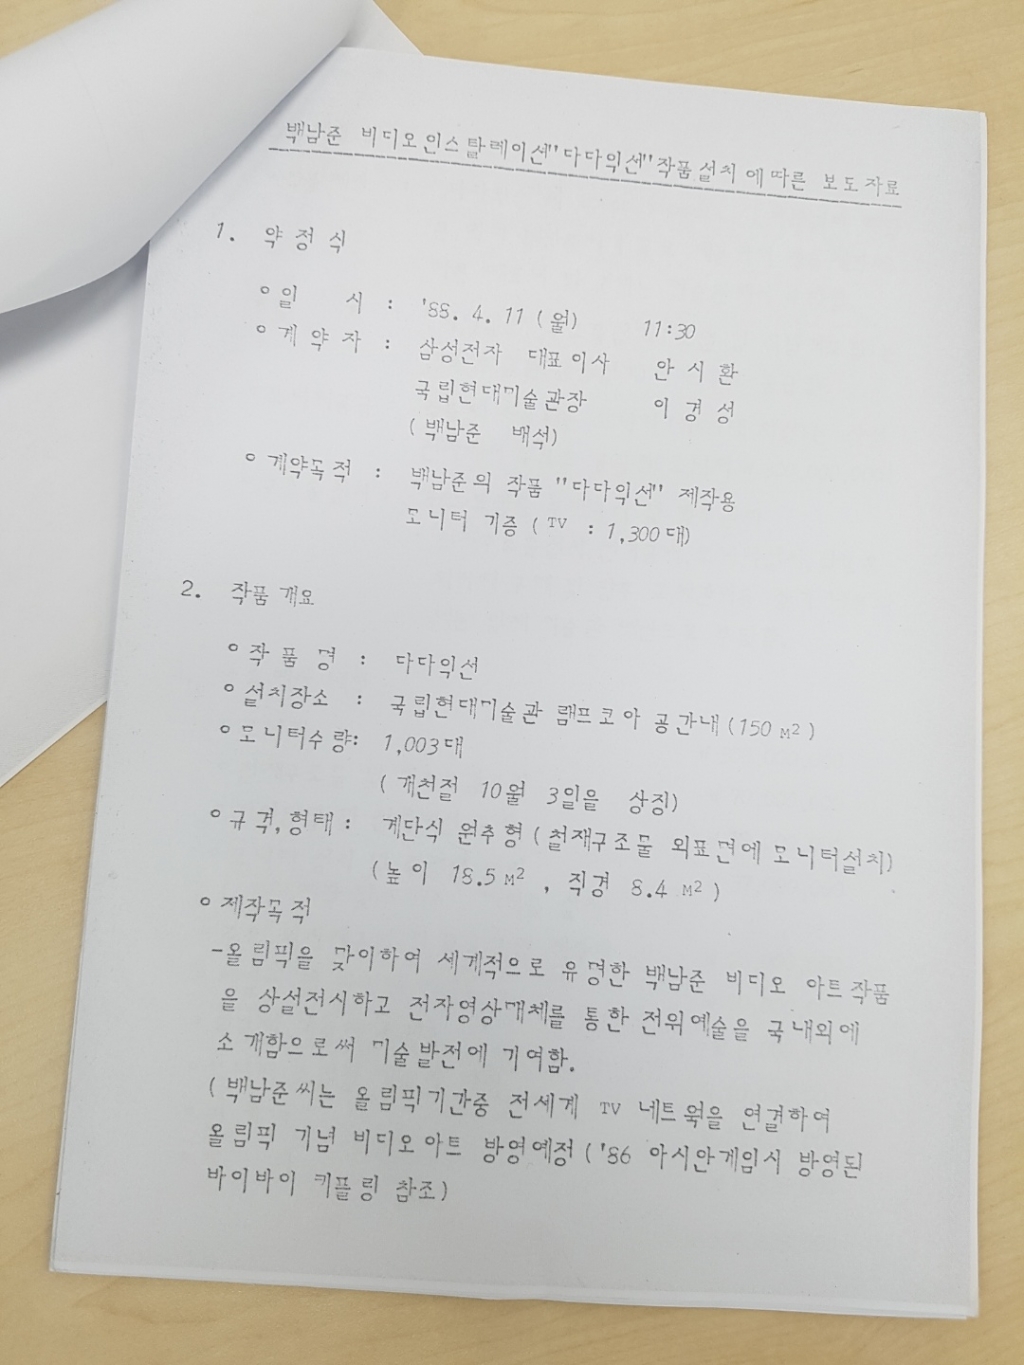 백남준 비디오인스탈레이션"다다익선"작품설치에따른 보도자료
1. 약 정 식
ㅇ일 시 : '88. 4. 11 (월) 11:30
ㅇ계 약 자 : 삼성전자 대표이사 안 시 환
국립현대미술관장 이 경 성
(백남준 배석)
ㅇ계약목적 : 백남준의 작품 "다다익선" 제작용
모니터 기증 ( TV : 1,300대)
2. 작품 개요
ㅇ작 품 명 : 다다익선
ㅇ설치장소 : 국립현대미술관 램프코아 공간내(150 M2 )
ㅇ모니터수량: 1,003대
( 개천절 10월 3일을 상징)
ㅇ규격,형태 : 계단식 원추형 (철재구조물 외표면에 모니터설치)
(높이 18.5 M2 , 직경 8.4 M2 )
ㅇ제작목적
-올림픽을 맞이하여 세계적으로 유명한 백남준 비디오 아트작품
을 상설전시하고 전자영상매체를 통한 전위예술을 국내외에
소개함으로써 미술발전에 기여함.
(백남준씨는 올림픽기간중 전세계 TV 네트웍을 연결하여
올림픽 기념 비디오아트 방영예정 ('86 아시안게임시 방영된
바이바이 키플링 참조)